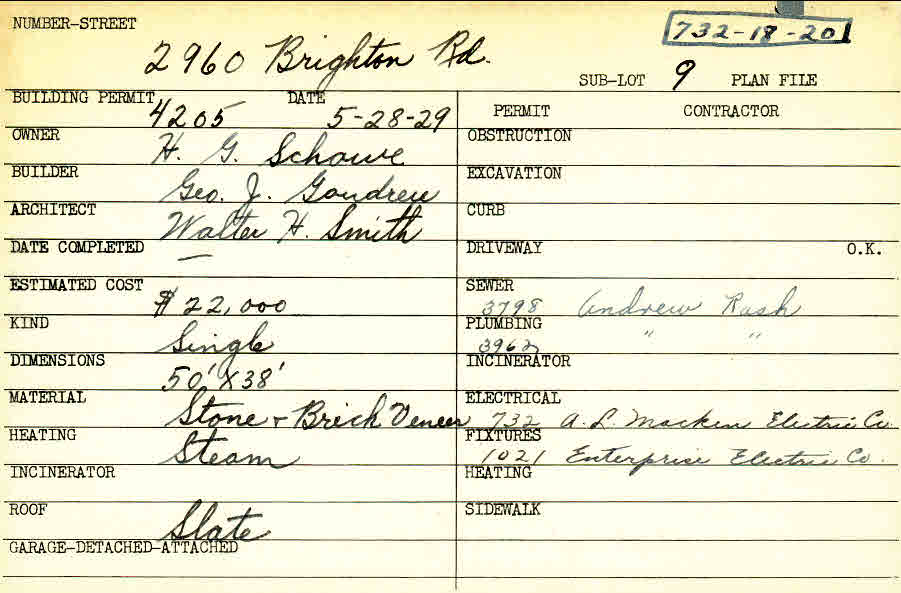 NUMBER-STREET
732-18-20
2960 Brighton Rd.
SUB-LOT 9 PLAN FILE
BUILDING PERMIT 4205 DATE 5-28-29
OWNER H. G. Schowe
BUILDER Geo. J. Goudreu
ARCHITECT Walter H. Smith
DATE COMPLETED —
ESTIMATED COST $22,000
KIND Single
DIMENSIONS 50' X 38'
MATERIAL Stone + Brick Veneer
HEATING Steam
INCINERATOR
ROOF Slate
GARAGE-DETACHED-ATTACHED
PERMIT CONTRACTOR
OBSTRUCTION
EXCAVATION
CURB
DRIVEWAY O.K.
SEWER 3798 Andrew Rash
PLUMBING 3962 " "
INCINERATOR
ELECTRICAL 732 A. L. Macken Electric Co.
FIXTURES 1021 Enterprise Electric Co.
HEATING
SIDEWALK